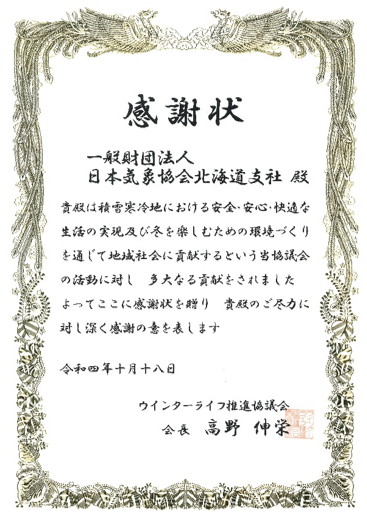 感謝状
一般財団法人
日本気象協会北海道支社 殿
貴殿は積雪寒冷地における安全・安心・快適な
生活の実現及び冬を楽しむための環境づくり
を通じて地域社会に貢献するという当協議会
の活動に対し 多大なる貢献をされました
よってここに感謝状を贈り 貴殿のご尽力に
対し深く感謝の意を表します
令和四年十月十八日
ウインターライフ推進協議会
会長 高野 伸栄